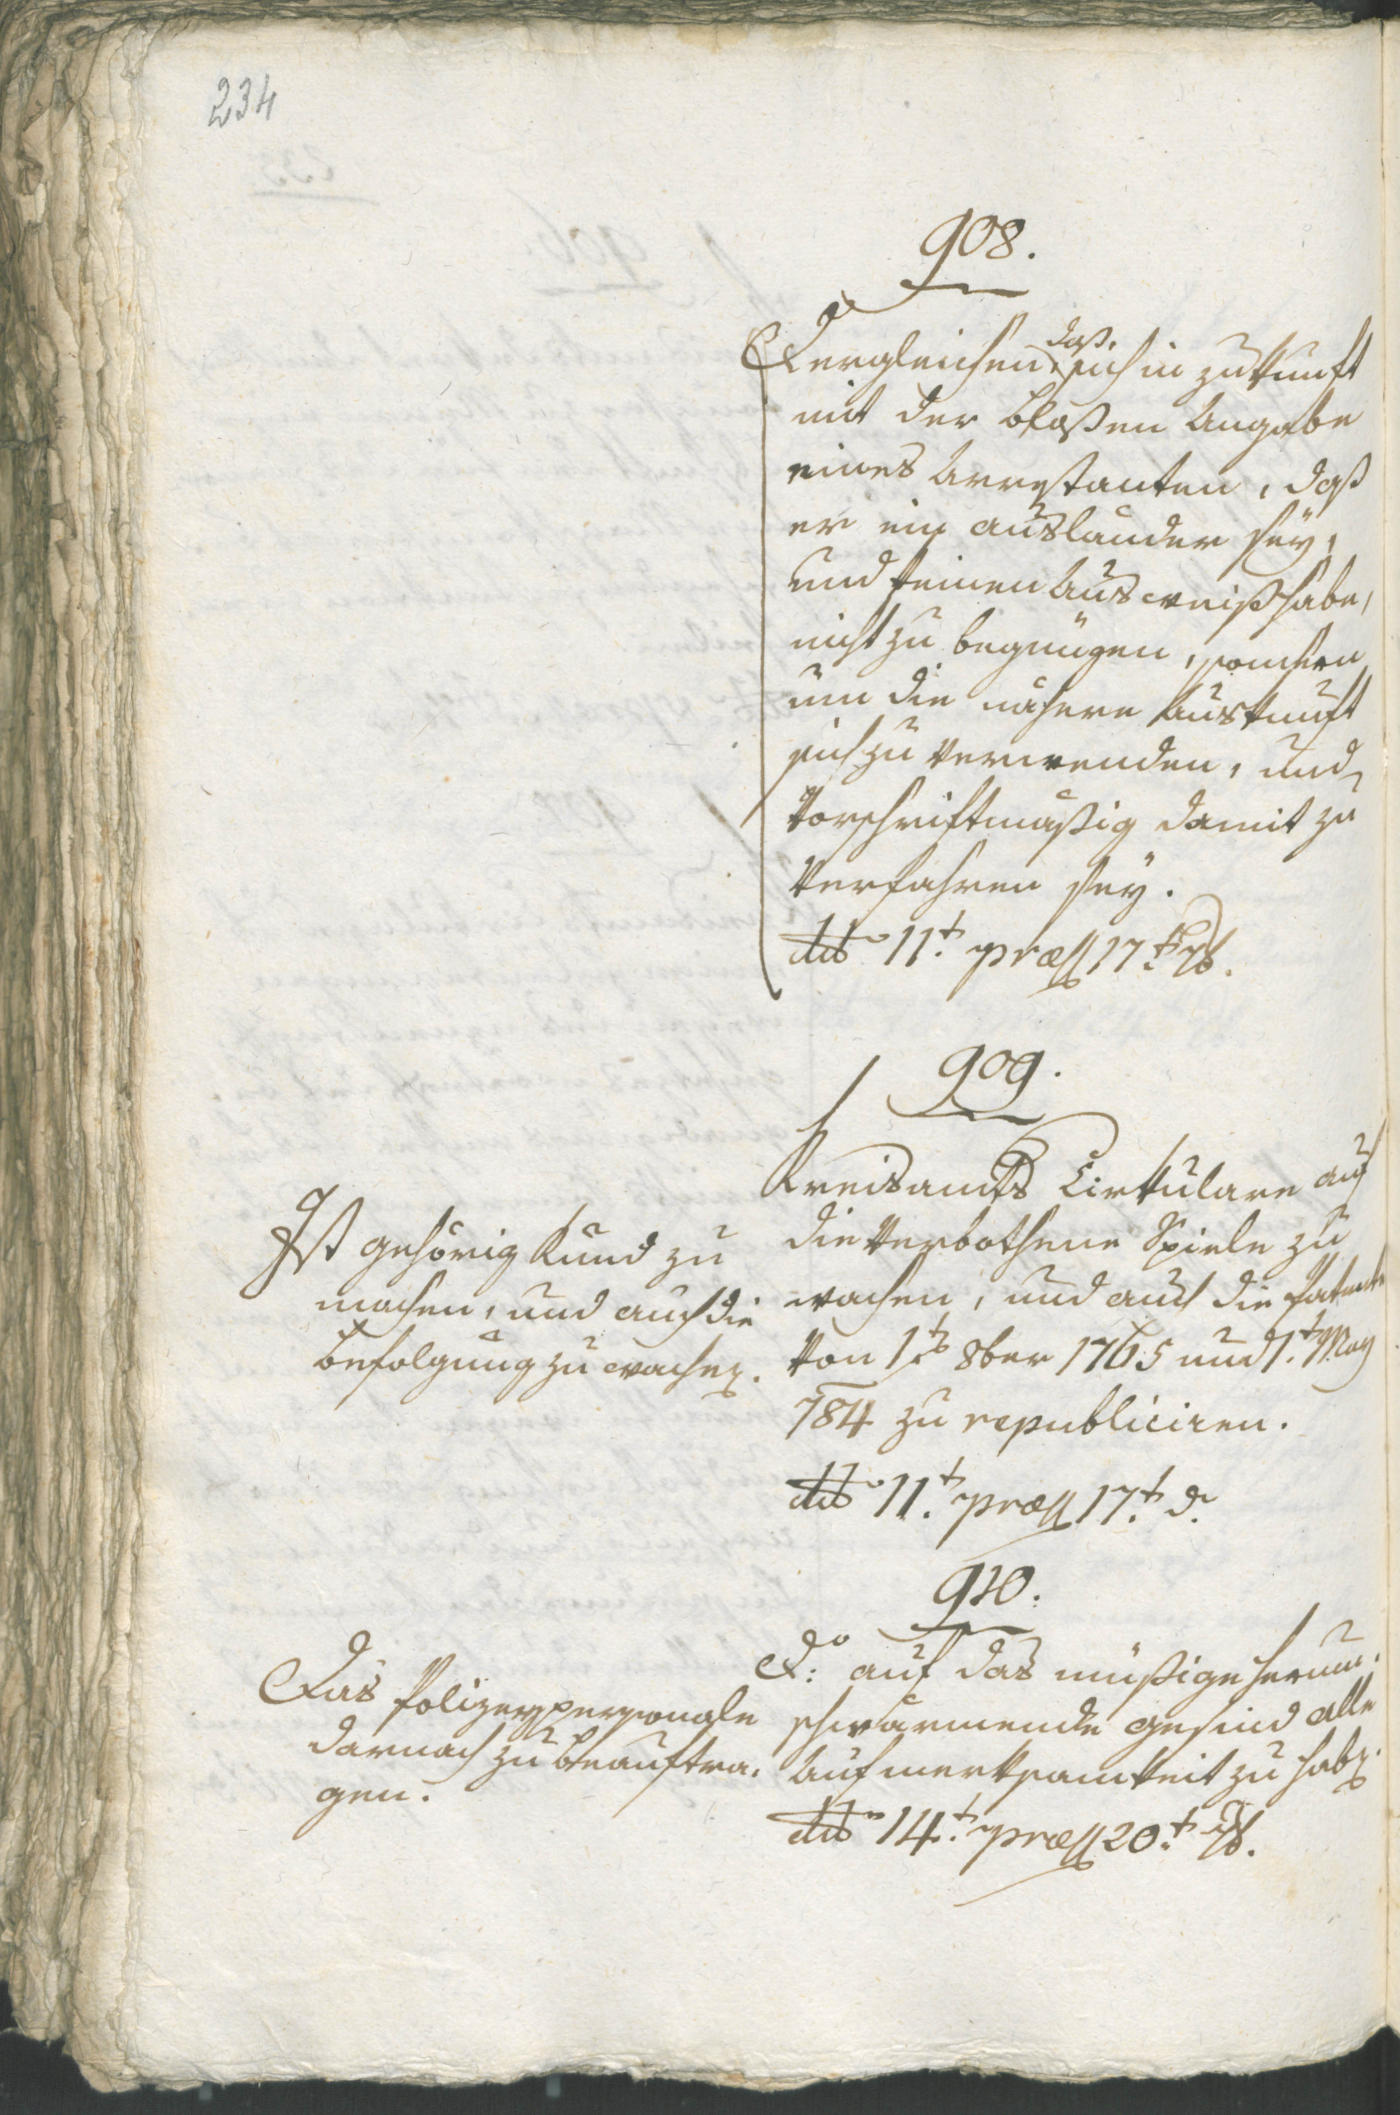 234
908.
Dergleichen, daß. sich in zukunft
mit der bloßen Angabe
eines Arrestanten, daß
er ein ausländer seÿ,
und keinen Ausweiß habe,
nicht zu begnügen, sondern
um die nähere Auskunft
sich zu verwenden, und
Vorschriftmäßig damit zu
Verfahren seÿ.
dto 11t. præss 17t
909.
Kreisamts Cirkulare auf
die Verbothene Spiele zu
wachen, und auch die Patente
von 1t 8ber 1765 und 1t. May
784 zu republiciren.
dto 11t. præss 17t. d.
Ist gehörig Kund zu
machen, und auch die
Befolgung zu wachen.
910.
Do. auf das müßige herum-
schwärmende gesind alle
Aufmerksamkeit zu haben.
dto 14t. præss 20t.
Das Polizeypersonale
darnach zu beauftra-
gen.